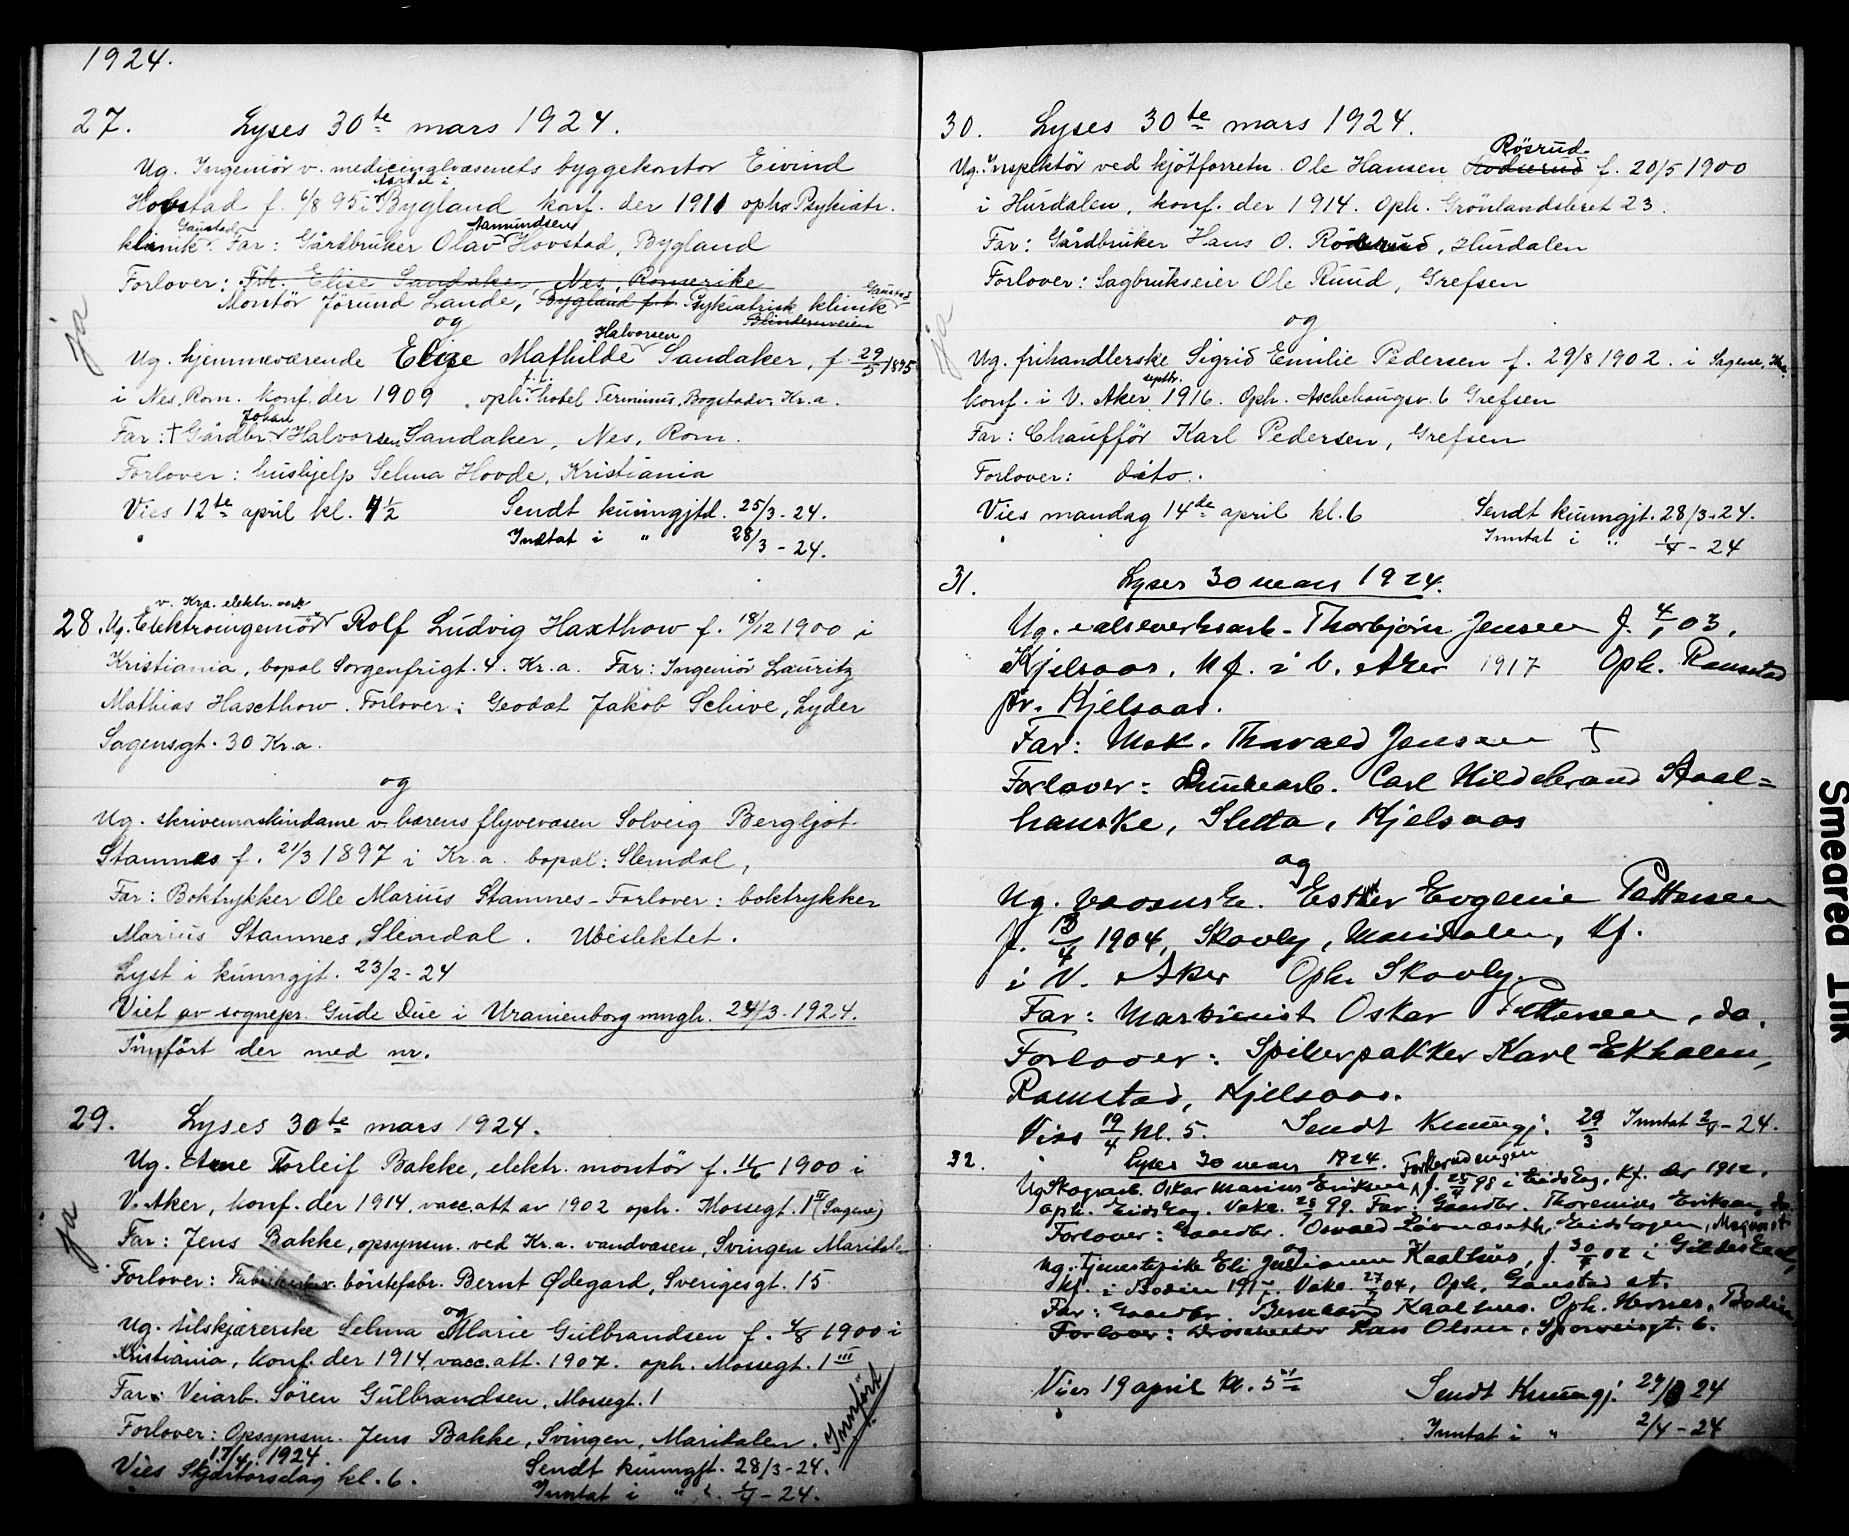 1924.
27. Lyses 30te mars 1924.
Ug. Ingeniör v. medicinalvæsenets byggekontor Eivind
Hovstad f. 6/8 95 i Bygland konf. der 1911 oph. Psykiatr.
Gaustad Aamundsen
klinik Far: Gårdbruker Olav Hovstad, Bygland
Forlover: Frk. Elise Sandaker, Nes, Romerike
Montör Jörund Lande, Bygland Psykiatrisk klinik Gaustad
Blindernveien
og
Halvorsen
Ug. hjemmeværende Elise Mathilde Sandaker, f. 29/5 1895
i Nes, Rom. konf. der 1909 oph. hotel Terminus, Bogstadv. Kr.a.
Johan
Far: † Gårdbr. Halvorsen Sandaker, Nes, Rom.
Forlover: hushjelp Selma Hovde, Kristiania
Vies 12te april kl. 4 1/2 Sendt kunngjtd. 25/3-24.
Inntat i " 28/3-24.
ja
v. Kra. elektr. verk
28. Ug. Elektroingeniör Rolf Ludvig Haxthow f. 18/12 1900 i
Kristiania, bopæl Sorgenfrigt. 4. Kr.a. Far: Ingeniör Lauritz
Mathias Haxthow. Forlover: Geodæt Jakob Schive, Lyder
Sagensgt. 30 Kr.a.
og
Ug. skrivemaskindame v. hærens flyvevæsen Solveig Bergljot
Stamnes f. 21/3 1897 i Kr.a. bopæl: Slemdal,
Far: Boktrykker Ole Marius Stamnes - Forlover: boktrykker
Marius Stamnes, Slemdal. Ubeslektet.
Lyst i kunngjt. 23/2-24
Viet av sognepr. Gude Due i Uranienborg mngh. 24/3-1924.
Innfört der med nr.
29. Lyses 30te mars 1924.
Ug. Arne Torleif Bakke, elektr. montör f. 11/6 1900 i
V. Aker, konf. der 1914, vacc. att av 1902 oph. Mossegt. 1 II (Sagene)
Far: Jens Bakke, opsynsm. ved Kr.a. vandvæsen, Svingen Maridalen
Forlover: börstefabr. Bernt Ødegard, Sverigesgt. 15
og
Ug. tilskjærerske Selma Marie Gulbrandsen f. 4/8 1900 i
Kristiania, konf. der 1914, vacc. att. 1907. oph. Mossegt. 1 III
Far: Veiarb. Sören Gulbrandsen, Mossegt. 1
Forlover: Opsynsm. Jens Bakke, Svingen, Maridalen.
17/4. 1924.
Vies Skjærtorsdag kl. 6. Sendt kunngjt. 28/3-24.
Inntat i " 1/4-24.
ja
Innfört
30. Lyses 30te mars 1924.
Rösrud
Ug. Inspektör ved kjötforretn. Ole Hansen f. 20/5 1900
i Hurdalen, konf. der 1914. Oph. Grönlandsleret 23.
Far: Gårdbruker Hans O. Hurdalen
Forlover: Sagbrukseier Ole Ruud, Grefsen
og
Ug. frihandlerske Sigrid Emilie Pedersen f. 29/8 1902. i Sagene, Kra.
septbr.
konf. i V. Aker 1916. Oph. Aschehougsv. 6 Grefsen
Far: Chaufför Karl Pedersen, Grefsen
Forlover: dito.
Vies mandag 14de april kl. 6 Sendt kunngjt. 28/3-24.
Inntat i " 1/4-24
ja
31. Lyses 30 mars 1924.
Ug. valseverksarb. Thorbjørn Jensen f. 4/1 03,
Kjelsaas, kf. i V. Aker 1917 Oph. Ramstad
pr. Kjelsaas.
Far: Mek. Thorvald Jensen †
Forlover: Carl Hildebrand Staal=
hanske, Sletta, Kjelsaas
og
Ug. Esther Evgenie Pettersen
f. 13/4 1904, Skovly, Maridalen, kf.
i V. Aker Oph. Skovly.
Far: Maskinist Oskar Pettersen, do.
Forlover: Spikerpakker Karl Ekhalen,
Ramstad, Kjelsaas.
Vies 19/4 kl. 5. Sendt kunngj. 29/3 Inntat 2/4-24.
32. Lyses 30 mars 1924.
Ug. Skogsarb. Oskar Marius Eriksen, f. 25/4 98 i Eidskog, kf. der 1912.
oph. Eidskog. Vakc. 99. Far: Gaardbr. Thorenius Eriksen, do.
Forlover: Gaardbr. Osvald Eidskogen,
og
Ug. Tjenestepike Eli Julianne Kaalhus, f. 30/4 02 i Gildeskaal,
kf. i Bodin Vakc. 27/7 04, Oph. Gaustad st.
Far: Gaardbr. Bernard Kaalhus. Oph. Hernes, Bodin
Forlover: Lars Olsen, Sporveisgt. 6.
Vies 19 april kl. 5 Sendt kunngj. 29/3 24
Inntat i " 2/4-24
Smeared Ink